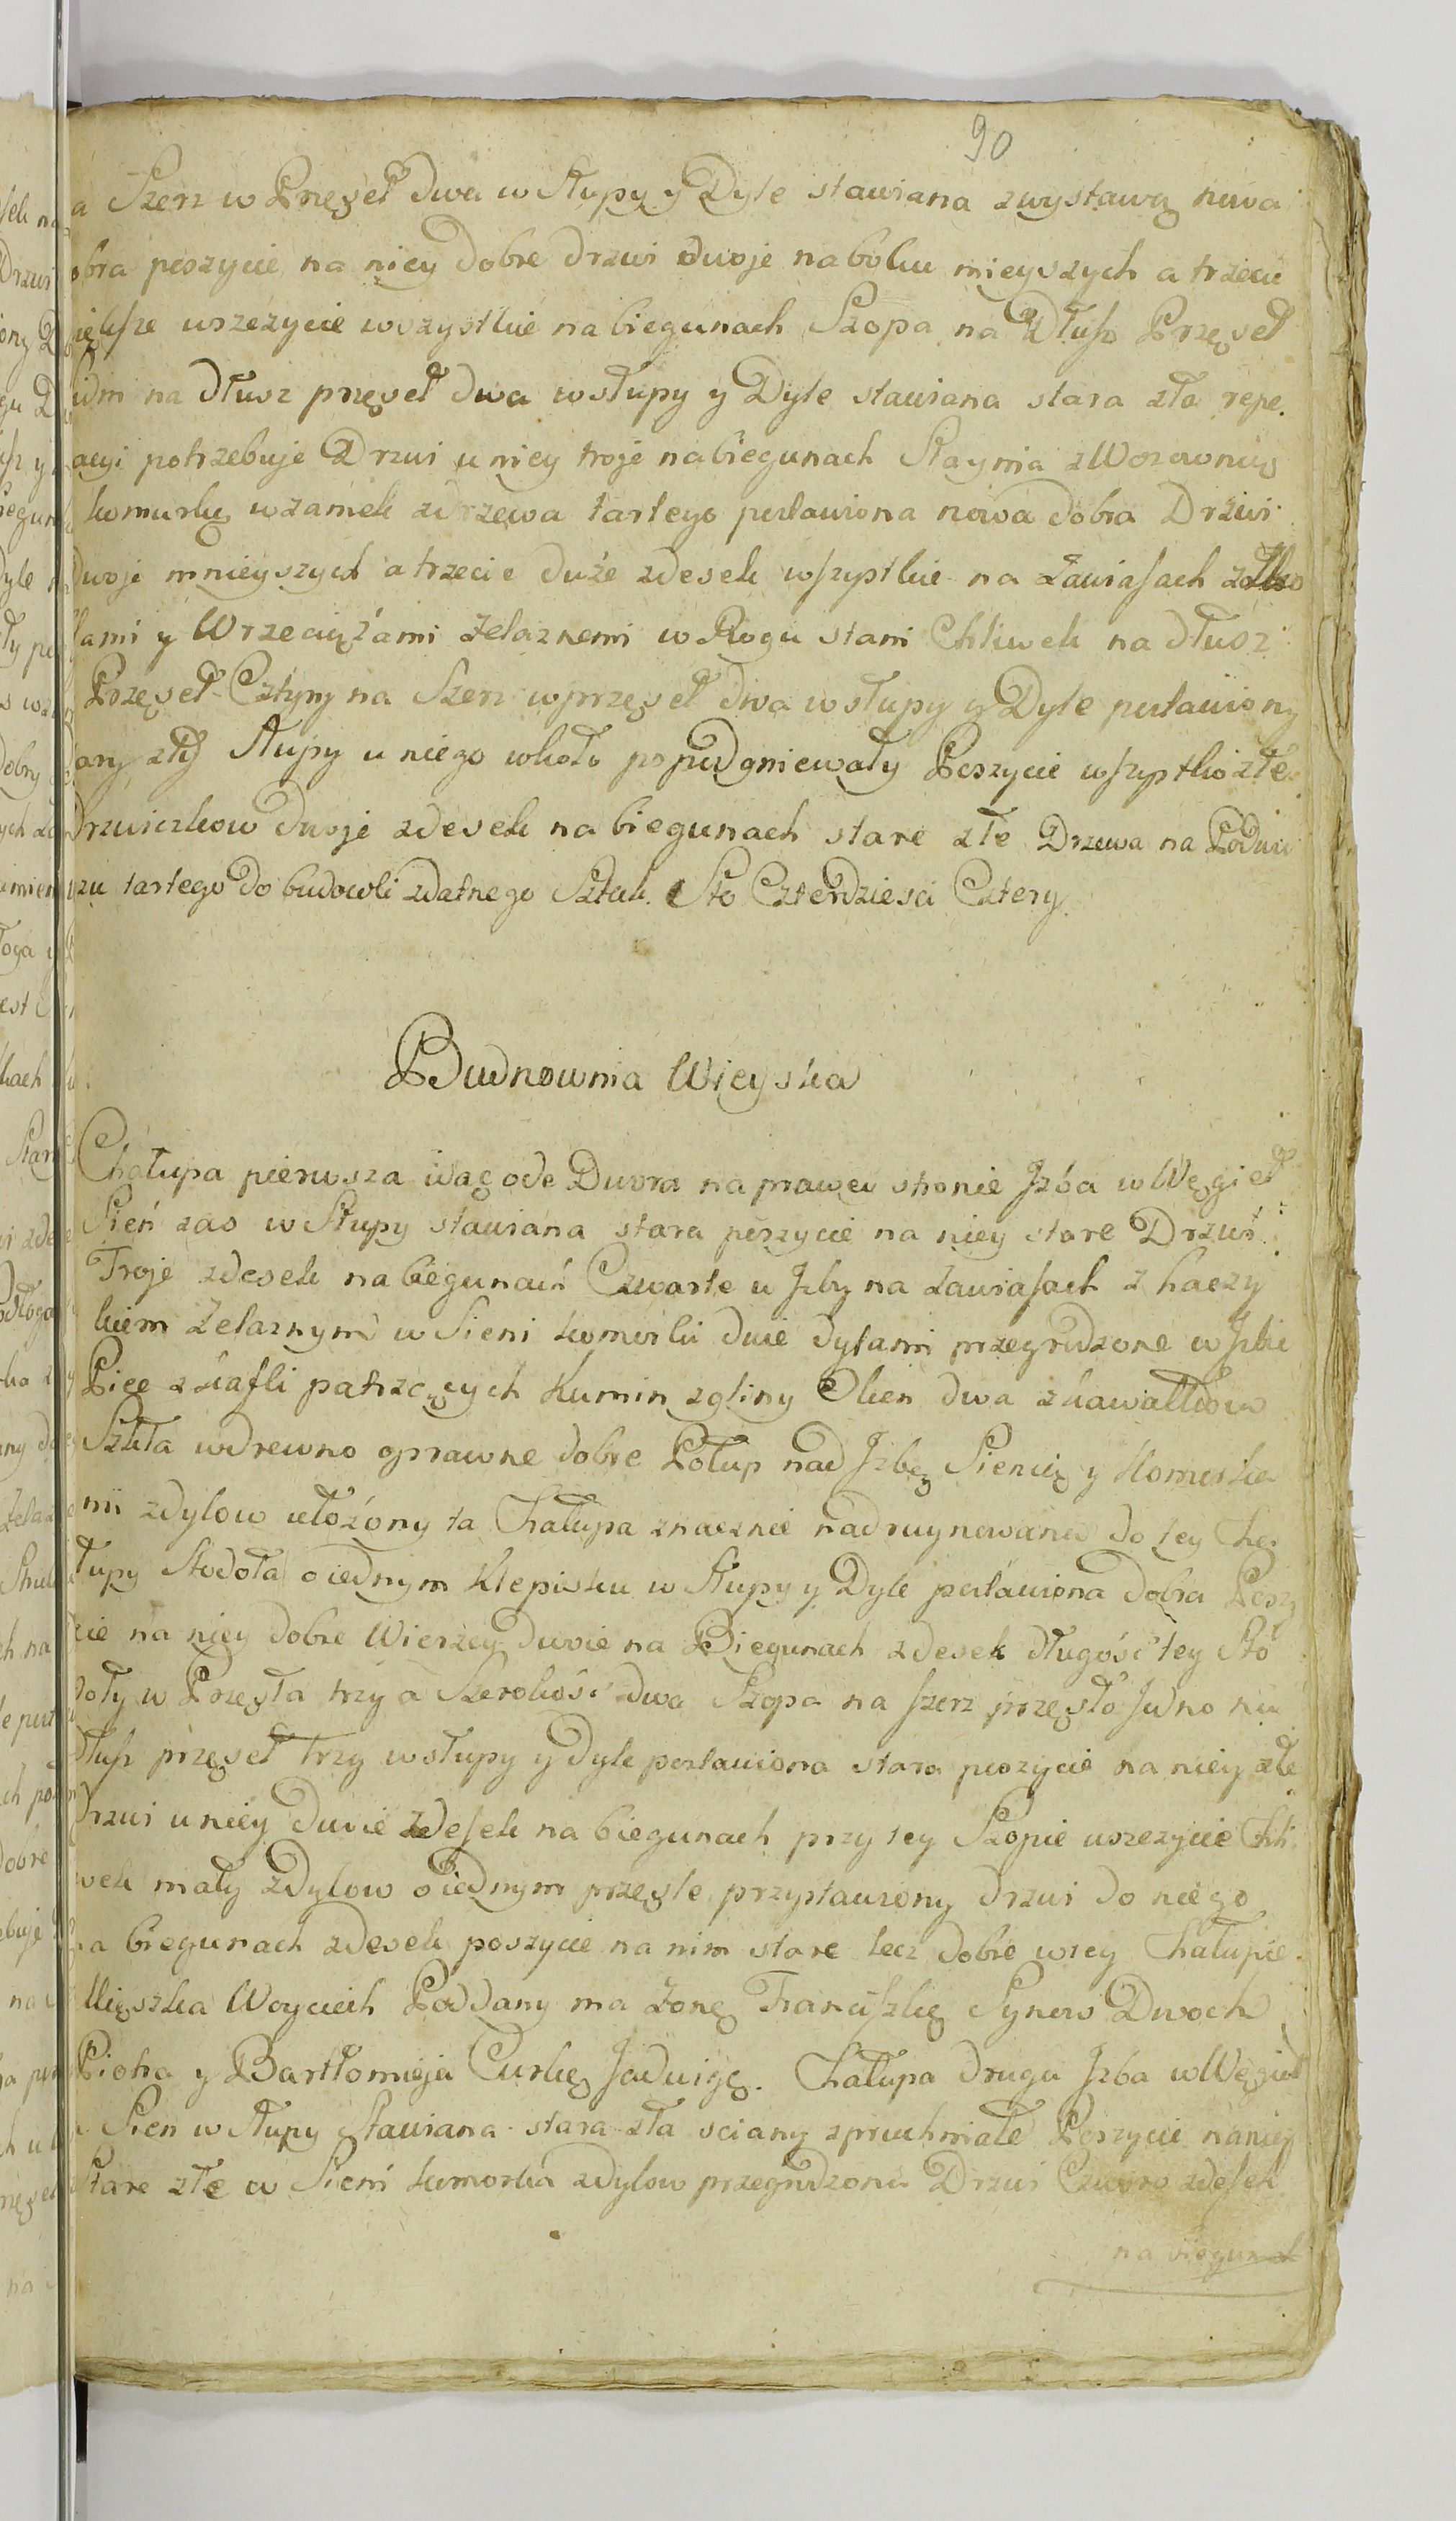 90
a Szerz w Przęseł dwa w Słupy y Dyle stawiana zwystawą nowa
obra poszycie na niey dobre drzwi dwoje naboku mieyszych a trzecie
iększe wrzeżycie wszystkie nabiegunach Szopa na Dłusz Przęseł
na dłusz przęseł dwa wsłupy y Dyle stawiana stara zła repe.
acyi potrzebuje Drzwi u niey troje nabiegunach Staynia zWozownią
komurką wzamek zdrzewa tartego postawiona nowa dobra Drzwi
dwoje mnieyszych a trzecie duże zdesek wszystkie na Zawiasach
ami y Wrzeciążami żelaznemi w Rogu stani Chliwek na dłusz
Przęseł Cztyry na Szerz wprzęseł dwa wsłupy y Dyle postawiony
ary zły Słupy u niego wkoło popudgniewały Poszycie wszystko złe
Drzwiczkow dwoje zdesek nabiegunach stare złe Drzewa na Podwu
rzu tartego do budowli zdatnego Sztuk Sto Czterdziesci Cztery.
Budnownia Wieyska
Chałupa pierwsza wagode Dwora na prawei stronie Jzba w Węgieł
Sień zas w Słupy stawiana stara poszycie na niey stare Drzwi
Troje zdesek nabiegunach Czwarte u Jzby na zawiasach z haczy
kiem żelaznym w Sieni komurki dwie dylami przegrodzone w Jzbie
Piec zkafli patrzących Kumin zgliny Okien dwa zkawałkow
Szkła wdrewno oprawne dobre Połup nad Jzbą Siencią y Komurka
mi zdylow ułożony ta Chałupa znacznie nadruynowana do tey Cha
łupy Stodoła oiednym Klepisku w Słupy y Dyle postawiona dobra Poszy
cie na niey dobre Wierzey dwoie na Biegunach zdesek długość tey Sto
doły w Przęsła trzy a Szerokość dwa Szopa na szerz przęsło Jedno na
dłusz przęseł Trzy wsłupy y dyle postawiona stara poszycie na niey złe
Drzwi u niey dwoie zdesek nabiegunach przy tey Szopie uszczycie Chli
wek mały zdylow o iednym przęsle przystawiony drzwi do niego
na biegunach zdesek poszycie na nim stare lecz dobre wtey Chałupie
Mieszka Woyciech Poddany ma żonę Franciszkę Synow Dwoch
Piotra y Bartłomieja Curkę Jadwigę. Chałupa druga Jzba w Węgieł
Sien w słupy Stawiana stara zła sciany zpruchniałe Poszycie naniey
stare złe w Sieni komorka zdylow przegrodzona Drzwi Czworo zdesek
na biegunach